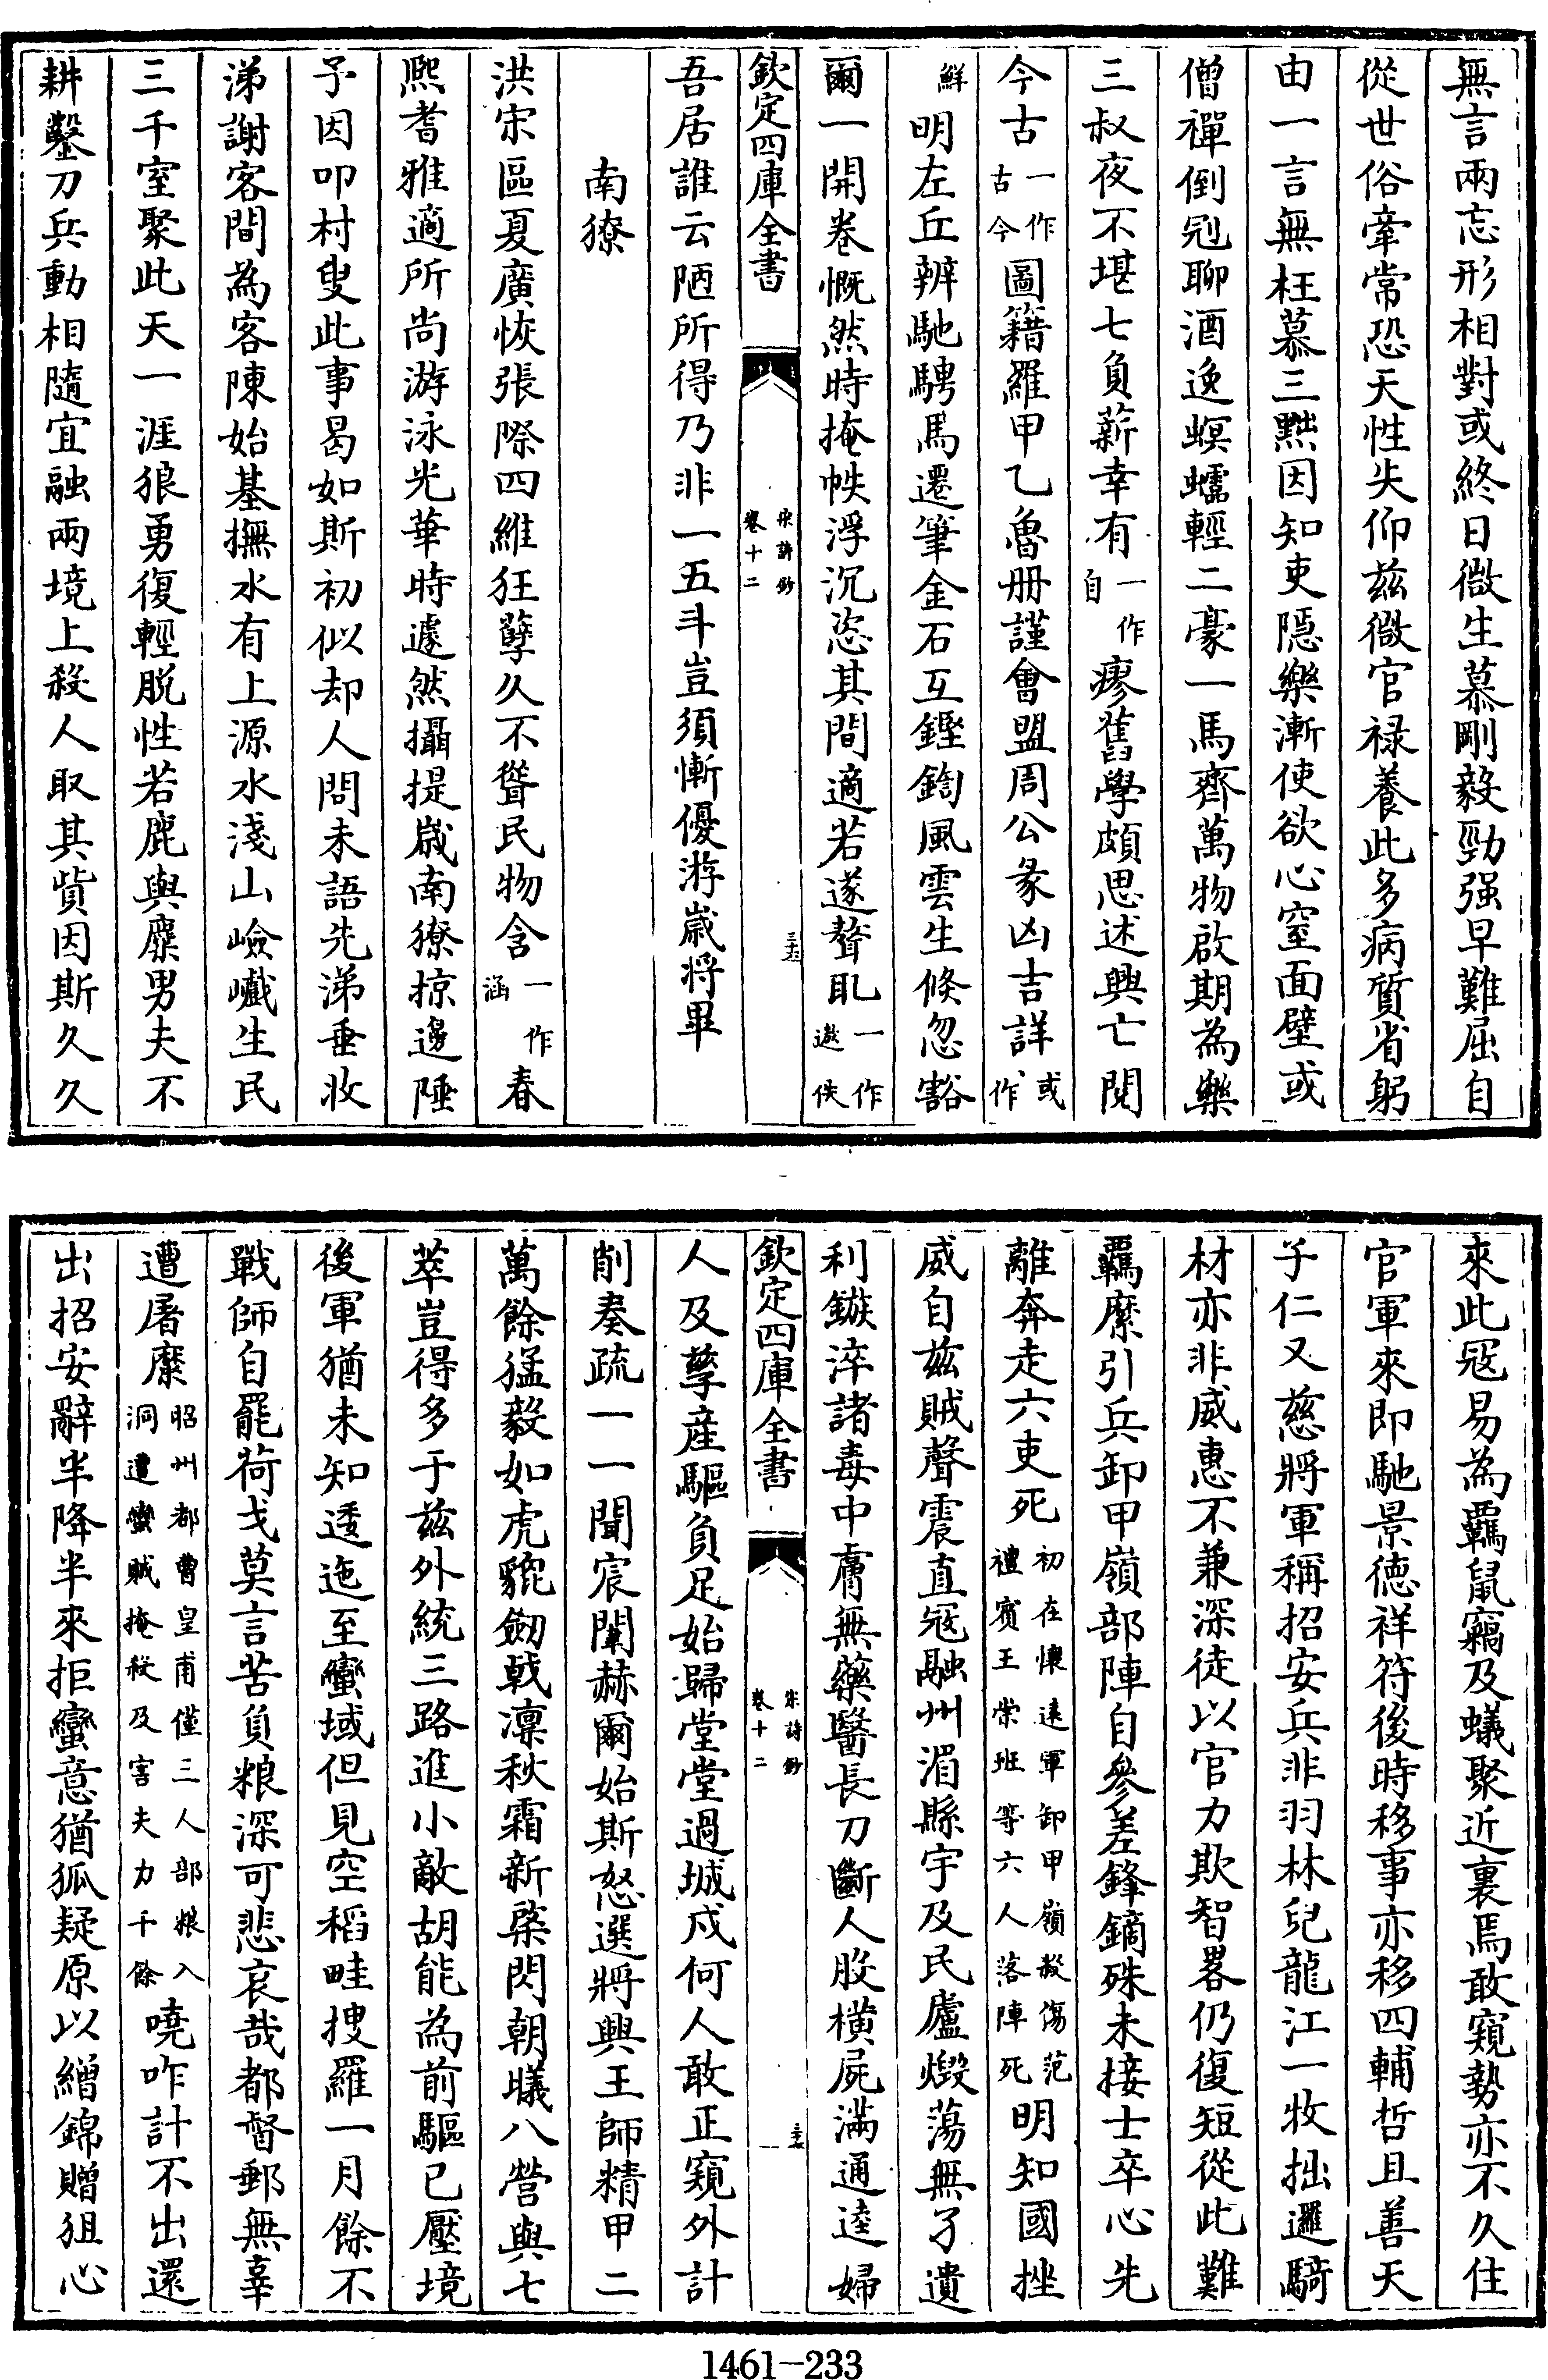 無言兩忘形相對或終日微生慕剛毅勁强早難屈自
從世俗牽常恐天性失仰兹微官禄養此多病質省躬
由一言無枉慕三黜因知吏隱樂漸使欲心窒面壁或
僧禪倒冠聊酒逸螟蠕輕二豪一馬齊萬物啟期為樂
三叔夜不堪七負薪幸有一作自瘳舊學頗思述興亡閱
今古一作古今圖籍羅甲乙魯册謹會盟周公彖凶吉詳或作
鮮明左丘辨馳騁馬遷筆金石互鏗鍧風雲生倐忽豁
爾一開卷慨然時掩帙浮沉恣其間適若遂聱耴一作遨佚
欽定四庫全書 宋詩鈔卷十二 三十五
吾居誰云陋所得乃非一五斗豈須慚優游歲將畢
南獠
洪宋區夏廣恢張際四維狂孽久不聳民物含一作涵春
熈耆雅適所尚游泳光華時遽然攝提歲南獠掠邊陲
予因叩村叟此事曷如斯初似却人問未語先涕垂收
涕謝客問為客陳始基撫水有上源水淺山嶮巇生民
三千室聚此天一涯狼勇復輕脱性若鹿與麋男夫不
耕鑿刀兵動相隨宜融兩境上殺人取其貲因斯久久
來此冦易為羈鼠竊及蟻聚近裏焉敢窺勢亦不久住
官軍來即馳景徳祥符後時移事亦移四輔哲且善天
子仁又慈將軍稱招安兵非羽林兒龍江一牧拙邏騎
材亦非威惠不兼深徒以官力欺智畧仍復短從此難
羈縻引兵卸甲嶺部陣自參差鋒鏑殊未接士卒心先
離奔走六吏死初在懷逺軍卸甲嶺殺傷范禮賓王崇班等六人落陣死明知國挫
威自兹賊聲震直冦融州湄縣宇及民廬燬蕩無孑遺
利鏃淬諸毒中膚無藥醫長刀斷人股横屍滿通逵婦
欽定四庫全書 宋詩鈔卷十二
人及孳産驅負足始歸堂堂過城戍何人敢正窺外計
削奏疏一一聞宸闈赫爾始斯怒選將興王師精甲二
萬餘猛毅如虎貔劒戟凛秋霜新棨閃朝曦八營與七
萃豈得多于兹外統三路進小敵胡能為前驅已壓境
後軍猶未知逶迤至蠻域但見空稻畦搜羅一月餘不
戰師自罷荷戈莫言苦負粮深可悲哀哉都督郵無辜
遭屠糜昭州都曹皇甫僅三人部粮入洞遭蠻賊掩殺及害夫力千餘嘵咋計不出還
出招安辭半降半來拒蠻意猶狐疑厡以繒錦贈狙心
1461-233